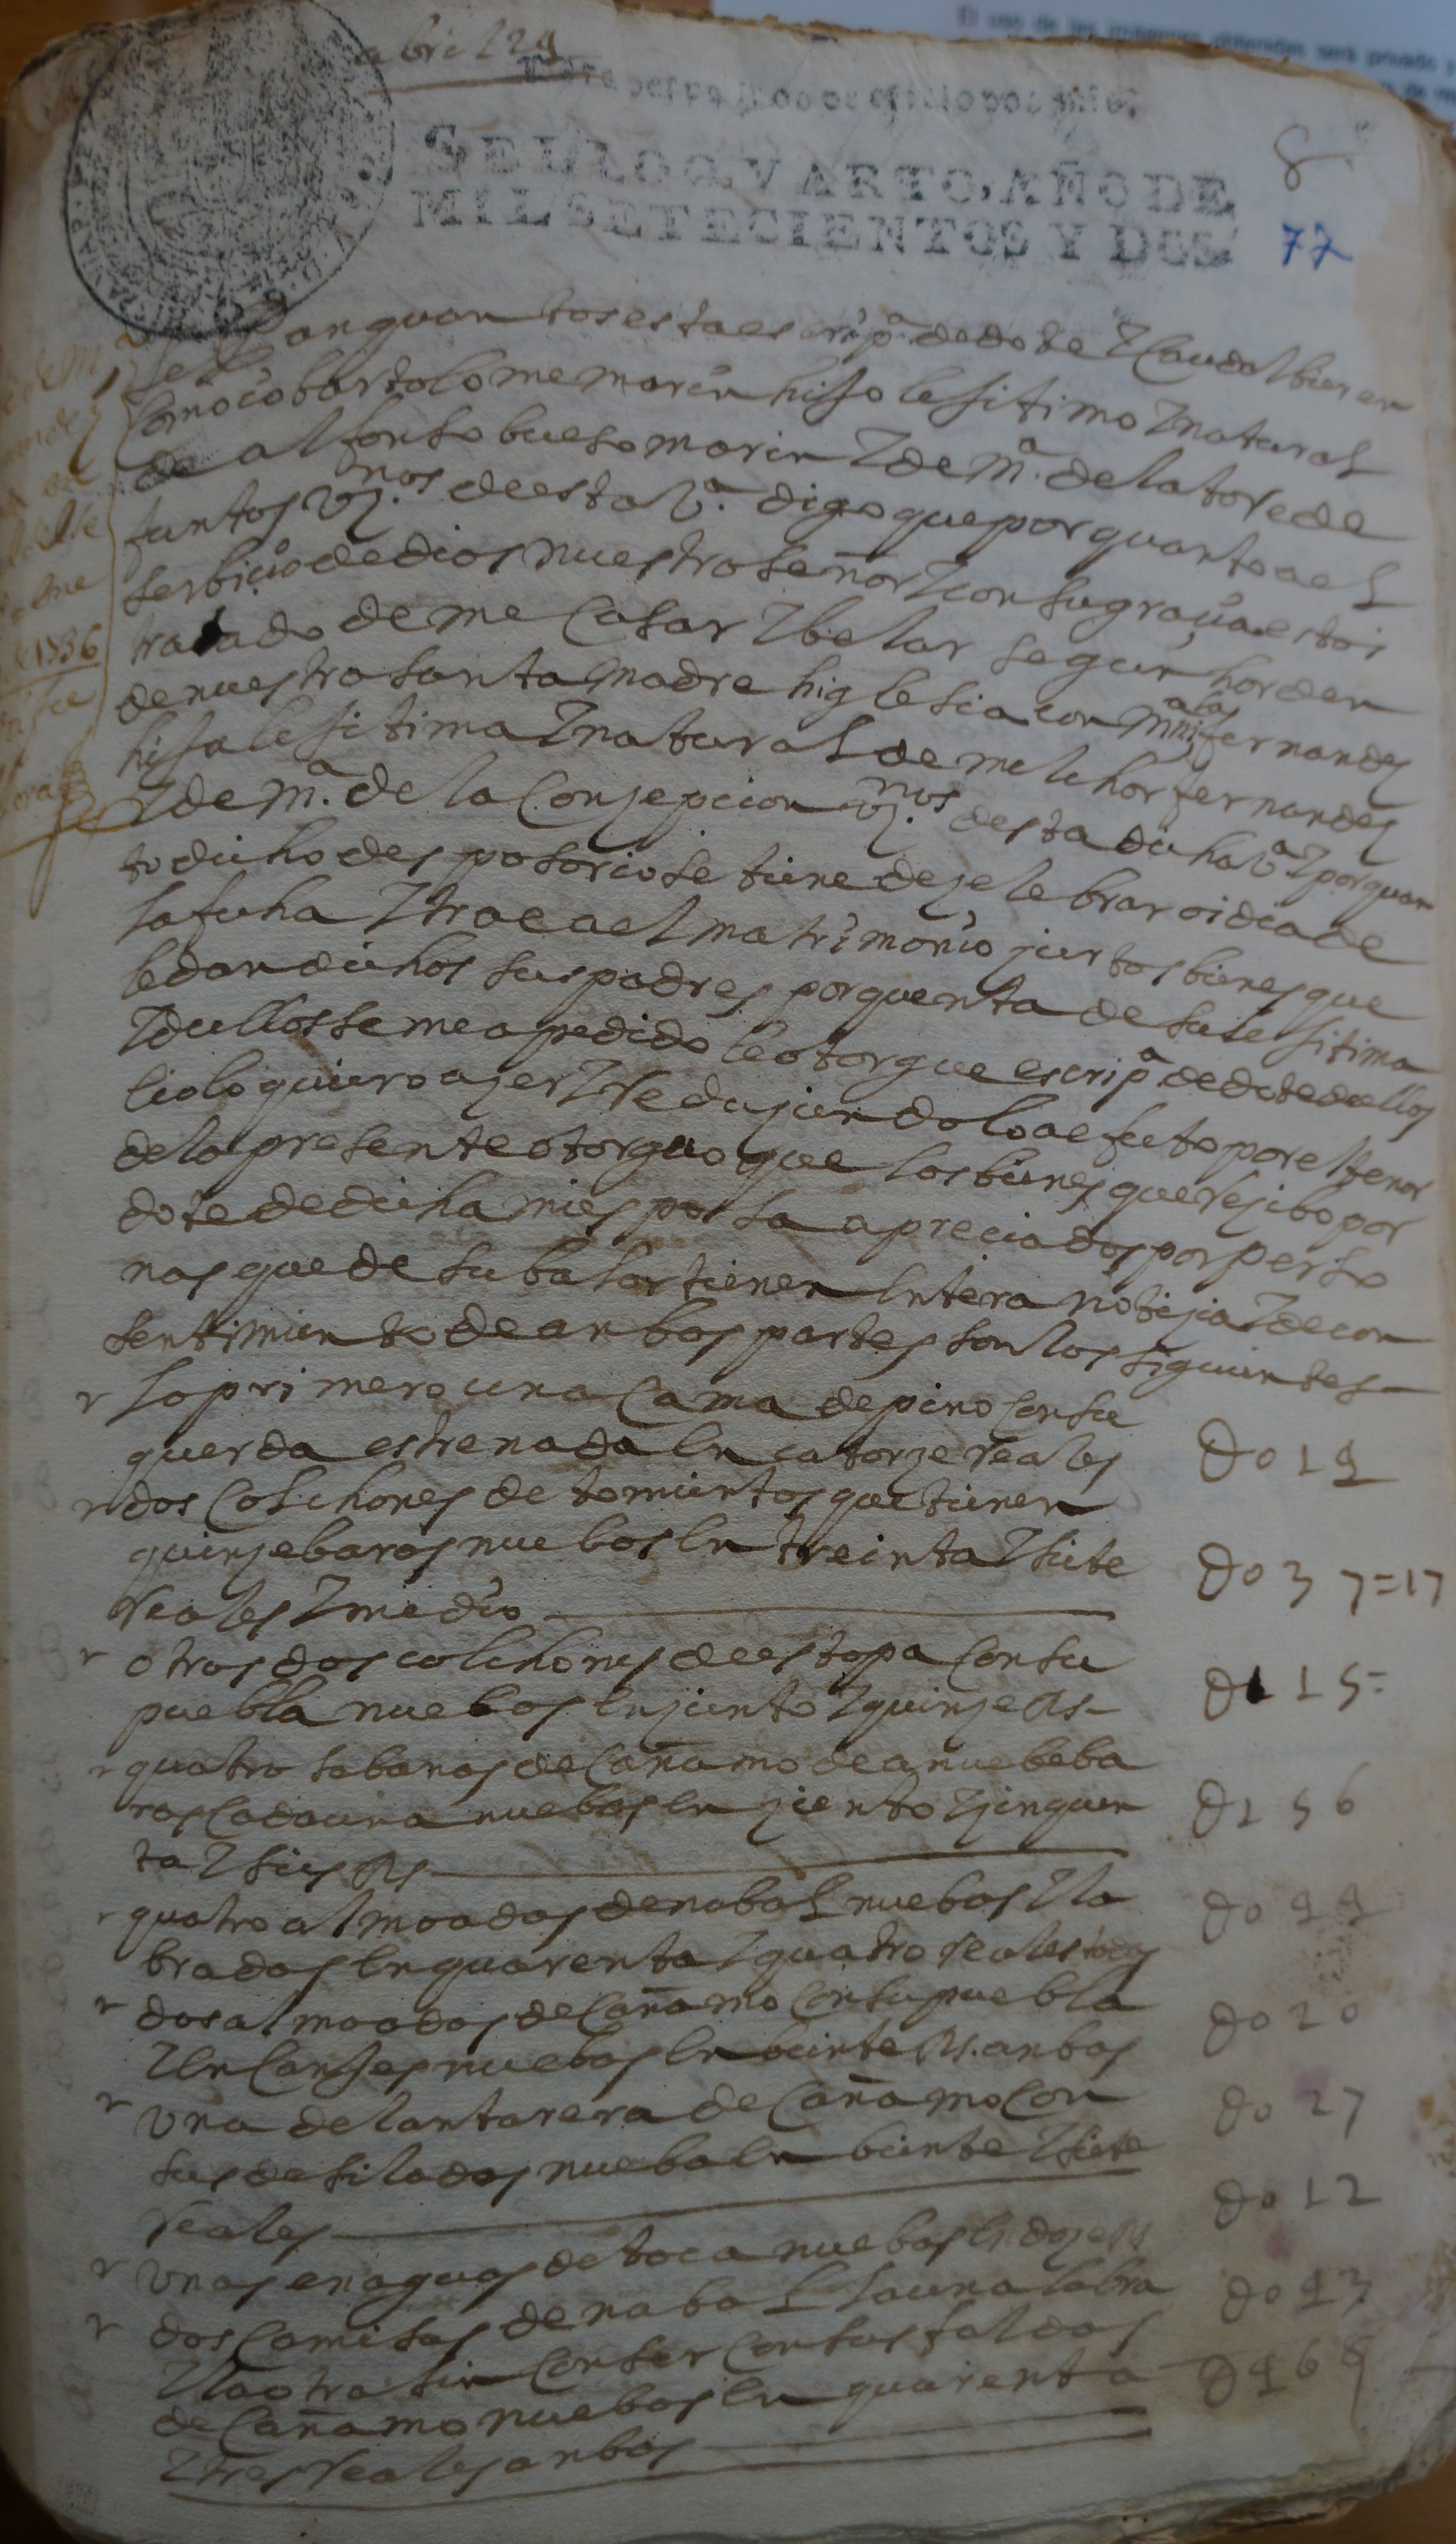 abril 29
SELLO QVARTO, AÑO DE
MIL SETECIENTOS Y DOS
8
77
Sepan quantos esta escrip.ª de dote I Caudal bieren
Como io bartolome marin hijo lesitimo I natural
de alfonso bueso marin I de m.ª de la tore de
funtos vz.nos de esta v.ª digo que por quanto a el
serbiçio de dios nuestro señor I con su graçia estoi
tratado de me Casar I belar segun horden
de nuestra santa madre higlesia con fernandes
hija lesitima I natural de melchor fernandes
I de m.ª de la Conzepcion vz.nos desta dicha v.ª I por quan
to dicho desposorio se tiene de zelebrar oi dia de
la fecha I trae a el matrimonio juntos bienes que
le dan dichos sus padres por quenta de su lesitima
I dellos se me a pedido le otorgue escrip.ª de dote de ellos
lo quiero azer I Reduziendolo a efeto por el tenor
de la presente otorguo que los bienes que Rezibo por
dote de dicha mi esposa apreciados por perso
nas que de su balor tienen Entera notizia I de con
sentimiento de anbas partes son los siguientes
lo primero una Cama de pino Con su
querda estrenada En catorze Reales
do 14
dos Colchones de tomientos que tienen
quinze baras nuebos En treinta I siete
Reales I medio
do 37=17
otros dos colchones de estopa Con su
puebla nuebos En ziento I quinze Rs
d 115=
quatro sabanas de Cañamo de a nuebe ba
ras Cada una nuebas En ziento I zinquen
ta I seis Rs
d 156
quatro almoadas de nabal nuebas I la
bradas En quarenta I quatro Reales todas
do 44
dos almoadas de Cañamo Con su puebla
I En Canjes nuebas En beinte Rs. anbas
do 20
Una delantarera de Cañamo Con
sus desilados nueba En beinte I siete
Reales
do 27
Unas enaguas de toca nuebas En doze Rs
do 12
dos Camisas de nabal la una labra
I la otra sin Conser Con sus faldas
de Cañamo nuebas En quarenta
I tres Reales anbas
do 43